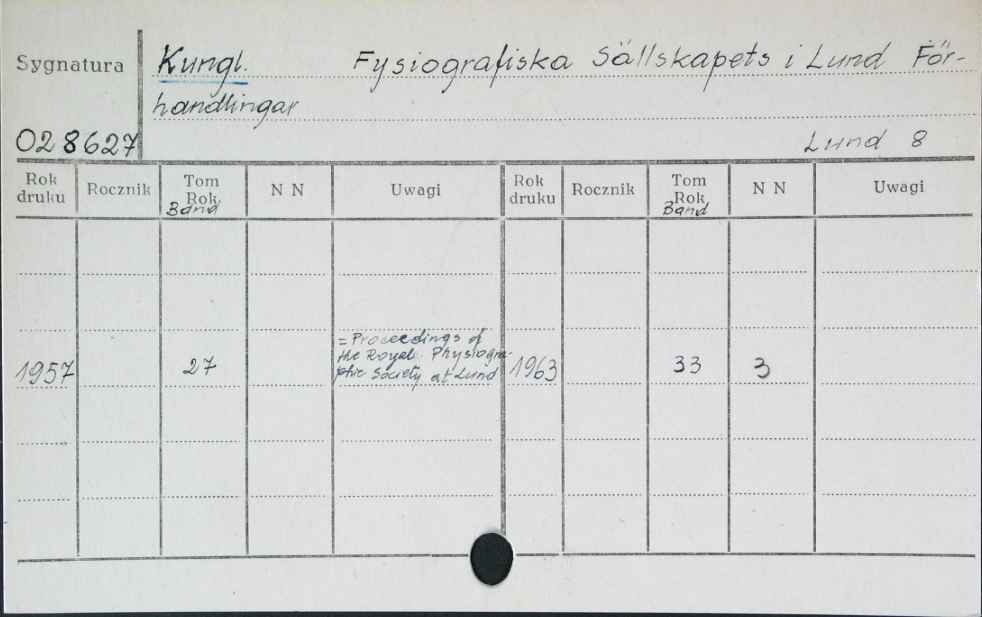 Sygnatura Kungl. Fysiografiska Sällskapets i Lund För-
handlingar
028627 Lund 8
Rok druku Rocznik Tom Rok Band N N Uwagi Rok druku Rocznik Tom Rok Band N N Uwagi
= Proceedings of
the Royal Physiogra-
phic Society at Lund
1957 27 1963 33 3